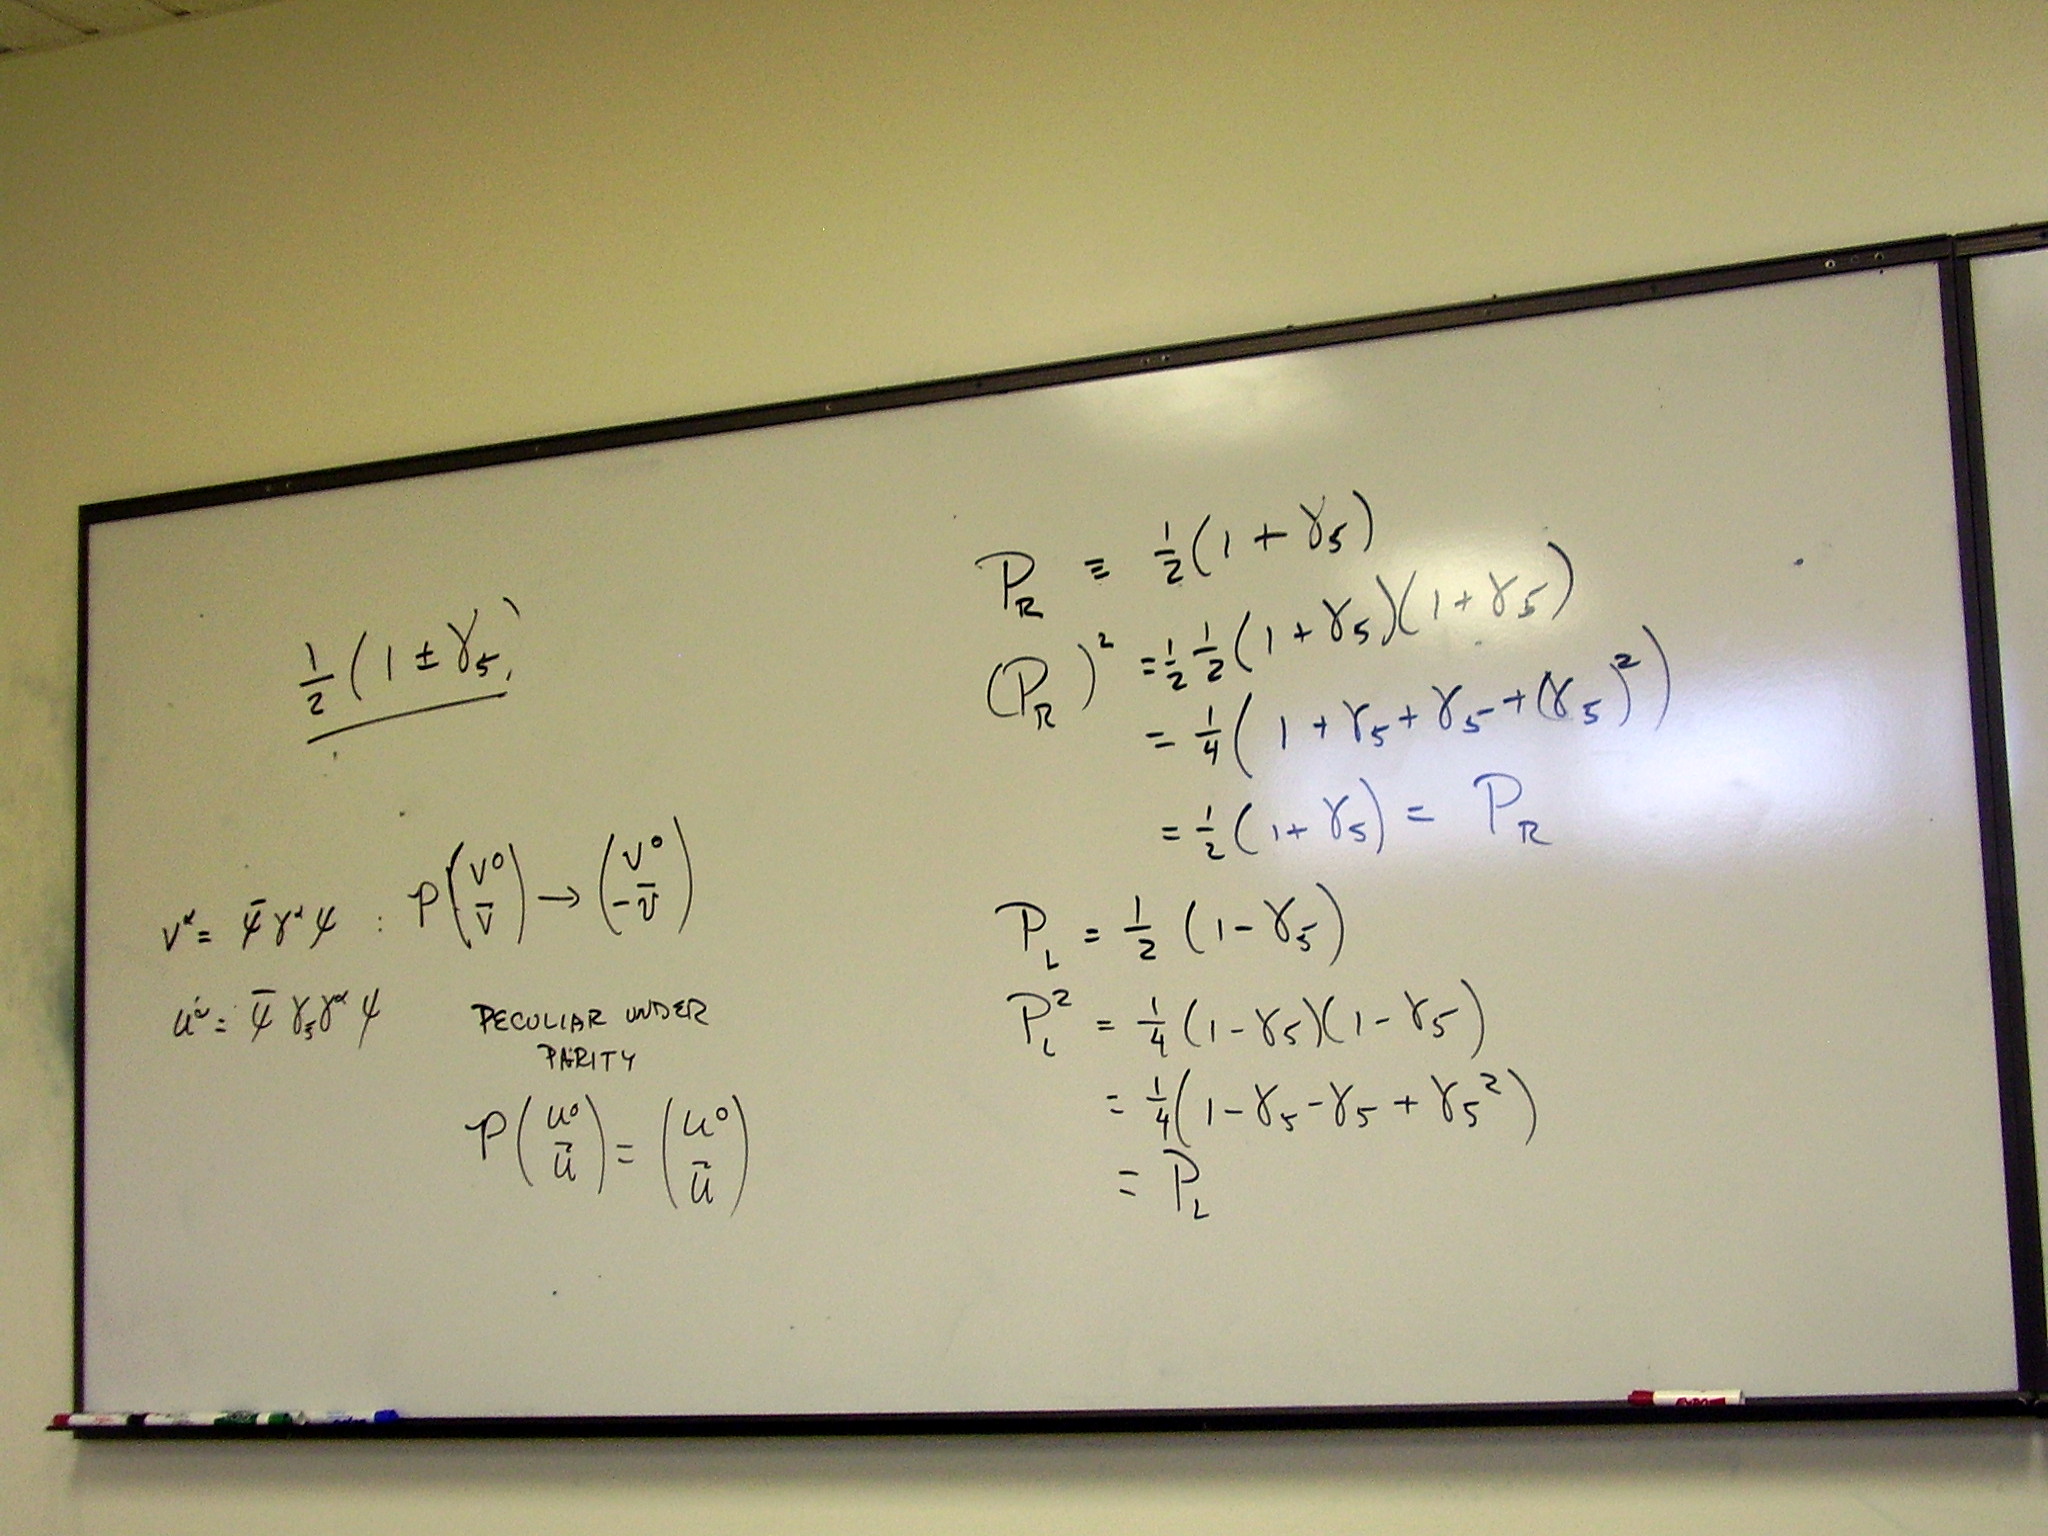 ½(1 ± γ₅)
v^α = ψ̄ γ^α ψ : P(v⁰ v̄) → (v⁰ -v̄)
u^α = ψ̄ γ₅γ^α ψ
PECULIAR UNDER
PARITY
P(u⁰ ū) = (u⁰ ū)
P_R ≡ ½(1 + γ₅)
(P_R)² = ½ ½(1 + γ₅)(1 + γ₅)
= ¼(1 + γ₅ + γ₅ + (γ₅)²)
= ½(1 + γ₅) = P_R
P_L = ½(1 - γ₅)
P_L² = ¼(1 - γ₅)(1 - γ₅)
= ¼(1 - γ₅ - γ₅ + γ₅²)
= P_L
EXPO